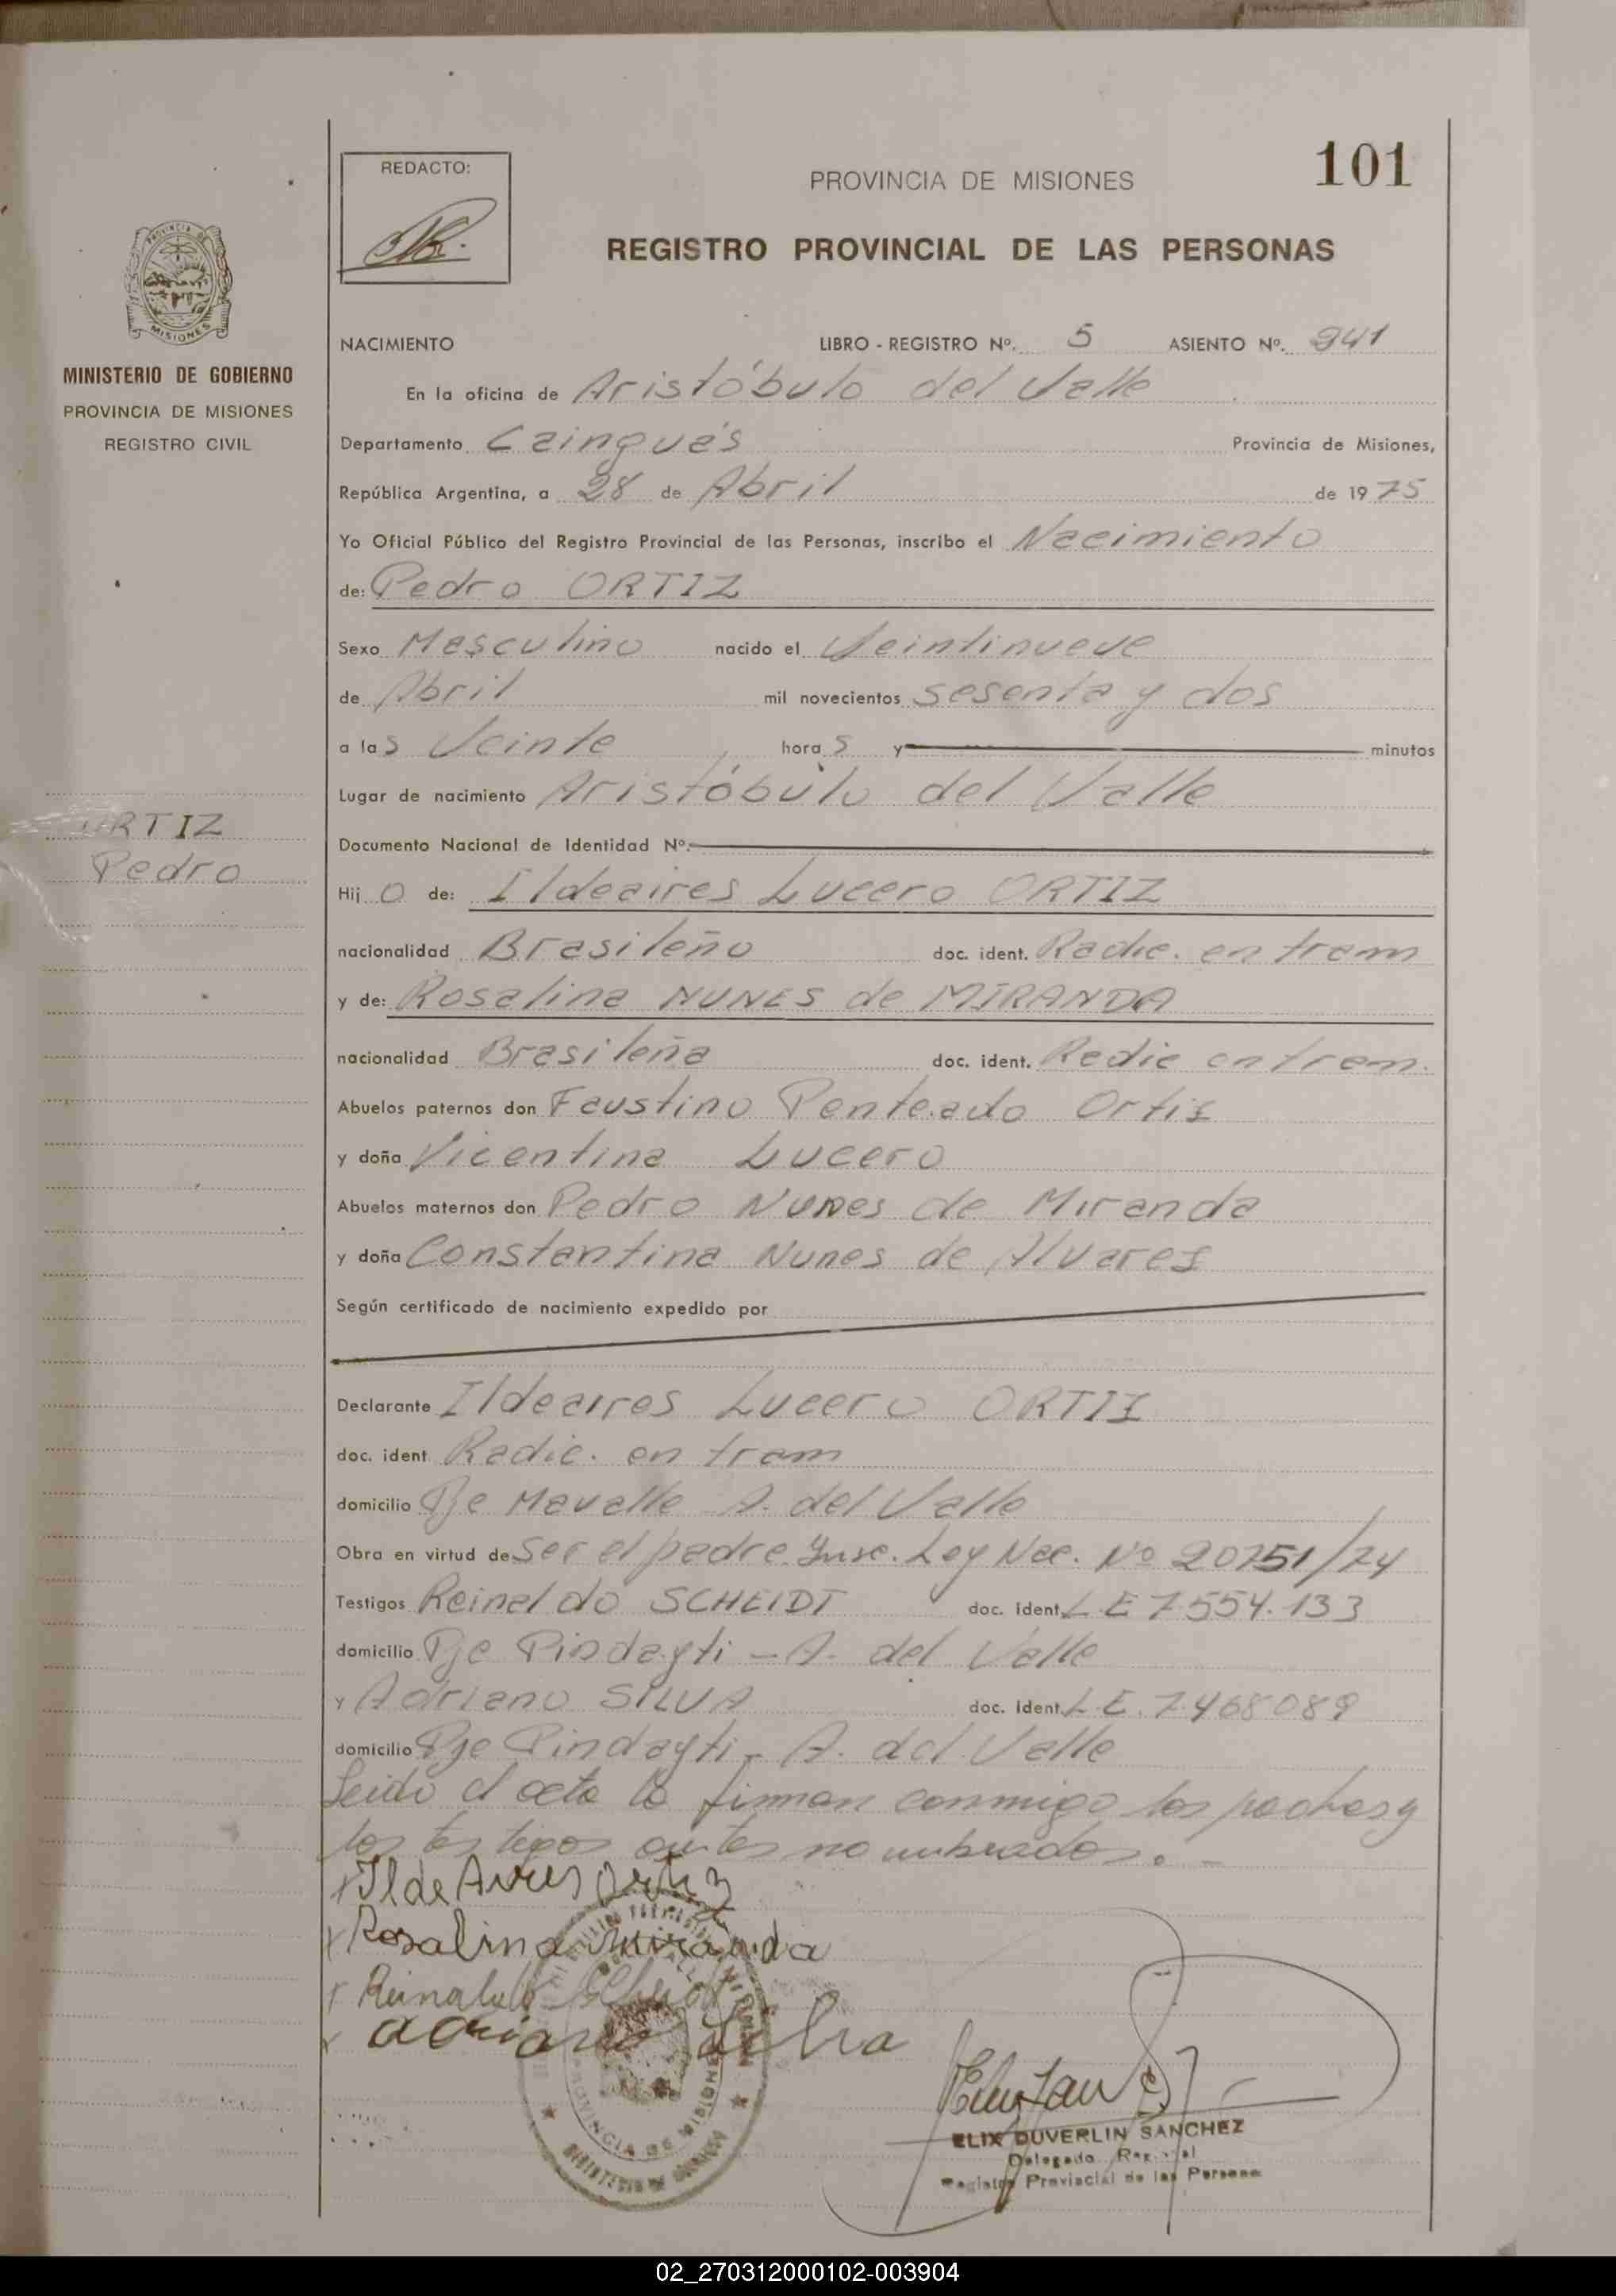 101
REDACTO:
PROVINCIA DE MISIONES
REGISTRO PROVINCIAL DE LAS PERSONAS
PROVINCIA DE
MISIONES
MINISTERIO DE GOBIERNO
PROVINCIA DE MISIONES
REGISTRO CIVIL
NACIMIENTO LIBRO - REGISTRO Nº. 5 ASIENTO Nº. 941
En la oficina de Aristóbulo del Valle
Departamento Cainguás Provincia de Misiones,
República Argentina, a 28 de Abril de 1975
Yo Oficial Público del Registro Provincial de las Personas, inscribo el Nacimiento
de: Pedro ORTIZ
Sexo Masculino nacido el Veintinueve
de Abril mil novecientos sesenta y dos
a las Veinte horas y minutos
Lugar de nacimiento Aristóbulo del Valle
ORTIZ
Pedro
Documento Nacional de Identidad Nº.
Hijo de: Ildeaires Lucero ORTIZ
nacionalidad Brasileño doc. ident. Radic. en tram
y de: Rosalina NUNES de MIRANDA
nacionalidad Brasileña doc. ident. Radic en tram.
Abuelos paternos don Faustino Penteado Ortiz
y doña Vicentina Lucero
Abuelos maternos don Pedro Nunes de Miranda
y doña Constantina Nunes de Alvares
Según certificado de nacimiento expedido por
Declarante Ildeaires Lucero ORTIZ
doc. ident. Radic. en tram
domicilio Pje Mavalle A. del Valle
Obra en virtud de Ser el padre. Insc. Ley Nac. Nº 20751/74
Testigos Reinaldo SCHEIDT doc. ident. L E 7554.133
domicilio Pje Pindayti - A. del Valle
y Adriano SILVA doc. ident. L E. 7.468089
domicilio Pje Pindayti - A. del Valle
Leido el acta la firman conmigo los padres y
los testigos antes nombrados. -
x Ilde Aires Ortiz
x Rosalina Miranda
x Reinaldo Scheidt
x adriano silva
PROVINCIA DE MISIONES
MINISTERIO DE GOBIERNO
ELIX DUVERLIN SANCHEZ
Delegado Regional
Registro Provincial de las Personas
02_270312000102-003904